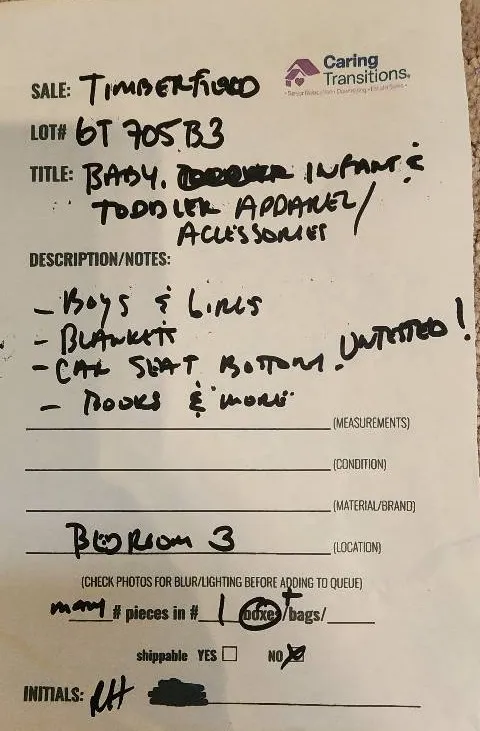 Caring
Transitions.
SALE: TIMBERFIELD
LOT# 6T 705 B3
TITLE: BABY, INFANT &
TODDLER APPAREL/
ACCESSORIES
DESCRIPTION/NOTES:
- BOYS & GIRLS
- BLANKETS
- CAR SEAT BOTTOM. UNTESTED!
- BOOKS & MORE
(MEASUREMENTS)
(CONDITION)
(MATERIAL/BRAND)
BEDROOM 3 (LOCATION)
(CHECK PHOTOS FOR BLUR/LIGHTING BEFORE ADDING TO QUEUE)
many # pieces in # 1 boxes+/bags/
shippable YES NO X
INITIALS: RH